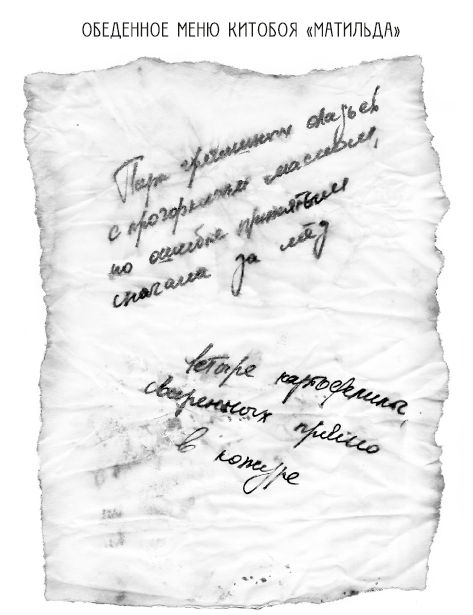 ОБЕДЕННОЕ МЕНЮ КИТОБОЯ «МАТИЛЬДА»
Пара гречишных оладьев
с прогорклым маслом,
по ошибке принятым
сначала за мёд
Четыре картофелины,
сваренных прямо
в кожуре